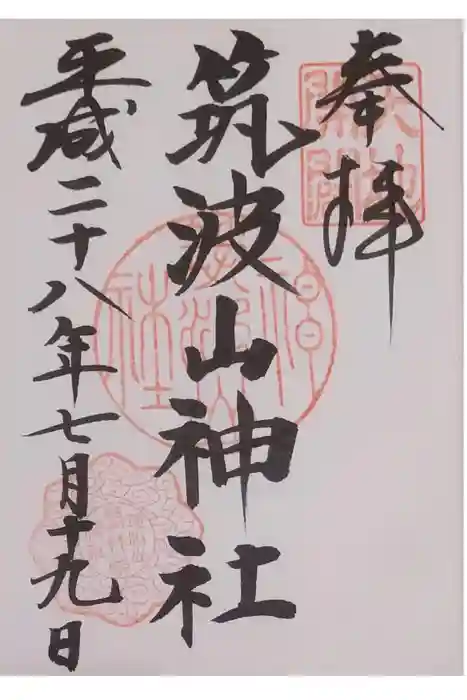 奉拝
筑波山神社
平成二十八年七月十九日